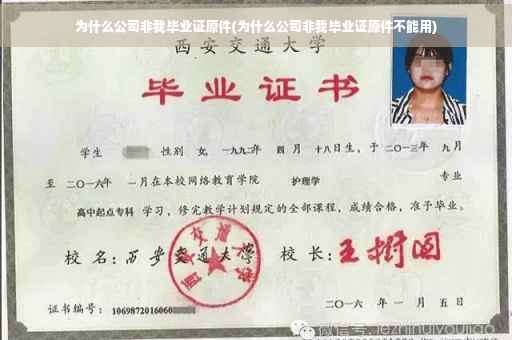 为什么公司非我毕业证原件(为什么公司非我毕业证原件不能用)
西安交通大学
毕业证书
学生 性别 女,一九九二年 四月 十八日生,于二〇一三年 九月
至 二〇一六年 一月在本校网络教育学院 护理学 专业
高中起点专科 学习,修完教学计划规定的全部课程,成绩合格,准予毕业。
校名:西安交通大学 校长:王树国
证书编号:1069872016060
二〇一六年 一月 五日
微信号:jezhihuiyoujiao